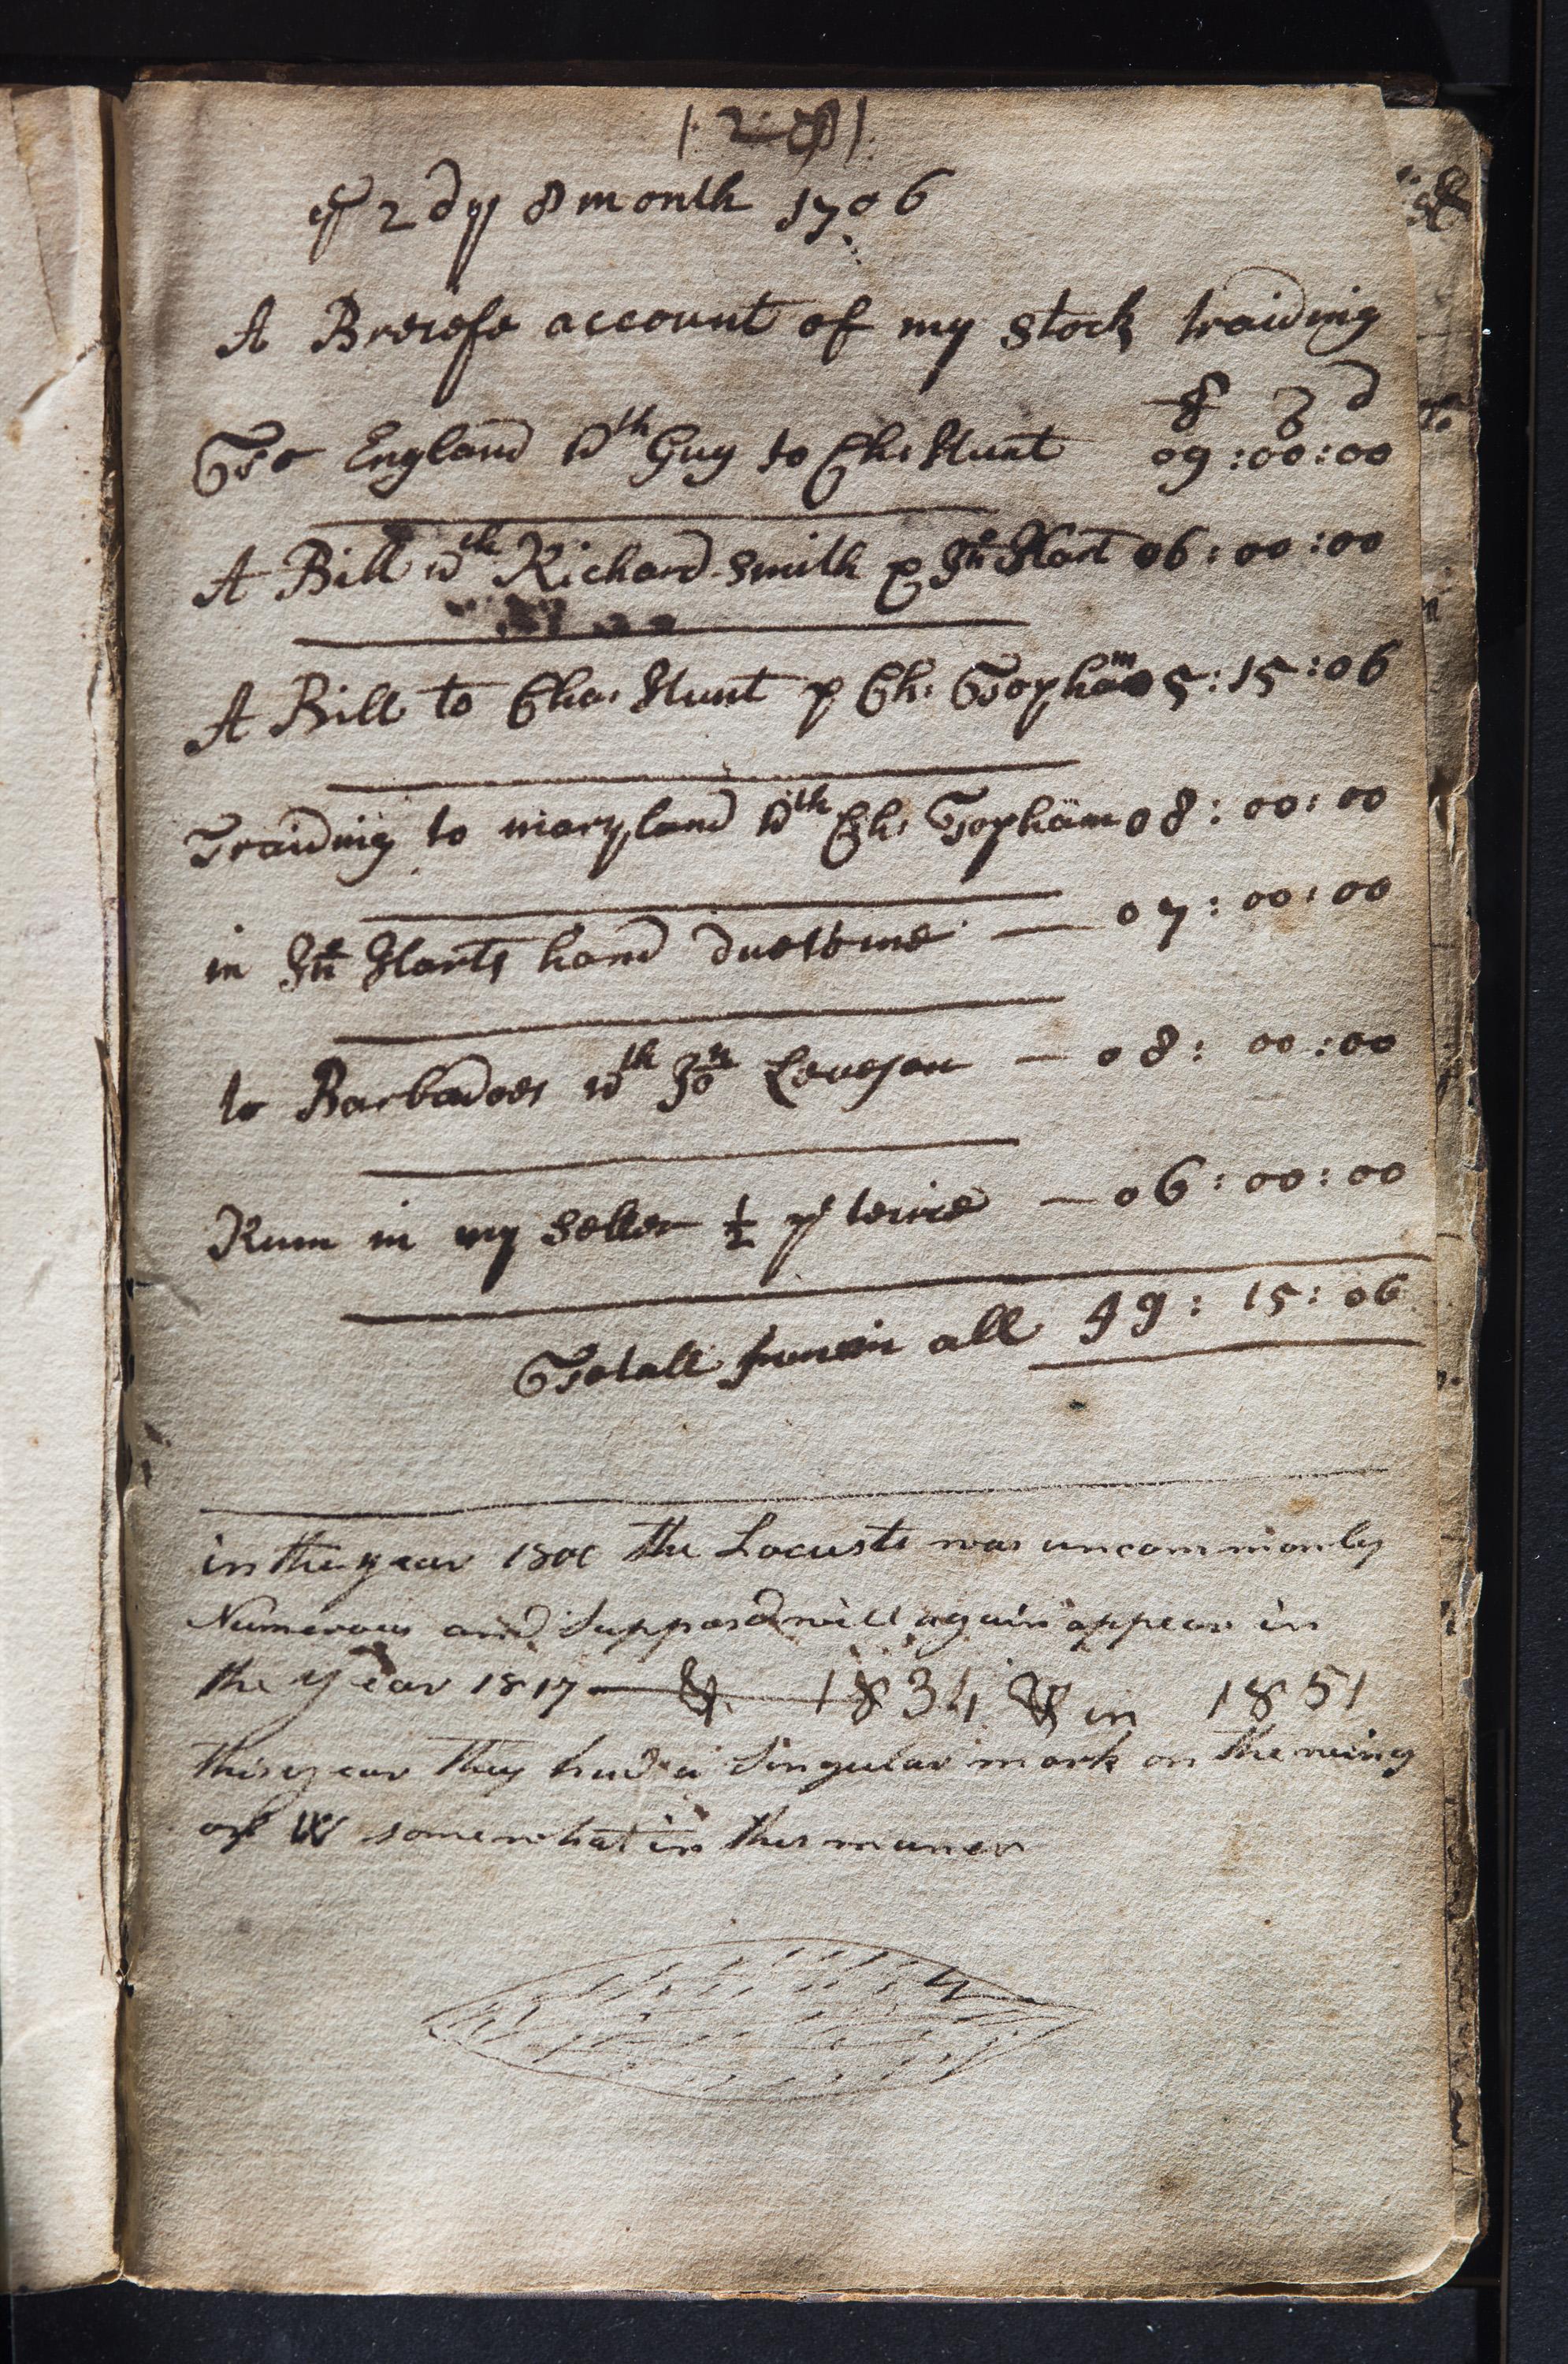 (28)
ye 2 d ye 8 month 1706
A Breiefe account of my stock traiding
£ s d
To England wth Guy to Ch: Hunt 09:00:00
A Bill wth Richard Smith p Jn Hart 06:00:00
A Bill to Cha: Hunt p Ch: Topham 05:15:06
Traiding to maryland wth Ch: Topham 08:00:00
in Jn Harts hand due to me — 07:00:00
to Barbadoes wth Jon Leveson — 08:00:00
Rum in my seller ½ ye teirce — 06:00:00
Totall sum in all 49:15:06
in the year 1800 the Locusts was uncommonly
Numerous and Supposd will again appear in
the year 1817 — & 1834 & in 1851
this year they had a Singular mark on the wing
of W somewhat in this maner